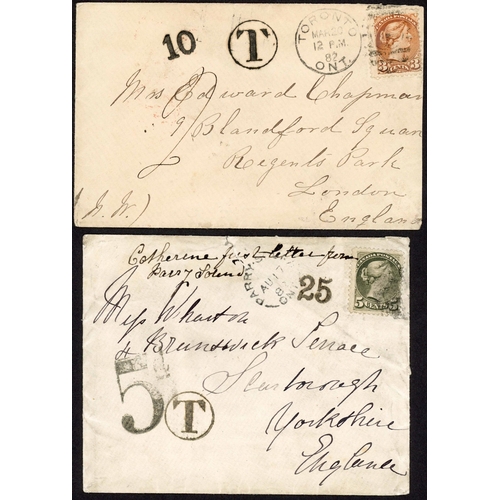 10 T
TORONTO
MAR 27
12 P.M.
82
ONT.
CANADA POSTAGE
3 CENTS 3
Mrs Edward Chapman
9 Blandford Square
Regents Park
London
(N. W.) England
Catherine first letter from
Parry Sound
PARRY
AU 17
ON
25
5 CENTS 5
Miss Wharton
4 Brunswick Terrace
Scarborough
Yorkshire
England
5
T